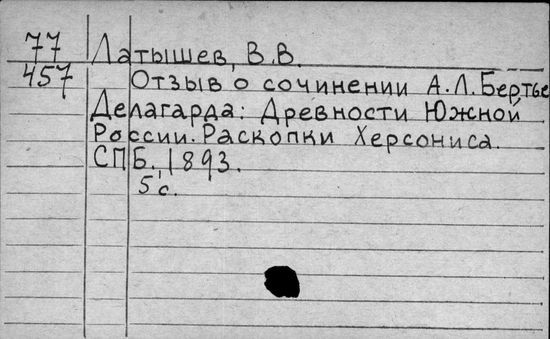 77 Латышев, В.В.
457 Отзыв о сочинении А.Л.Бертье
Делагарда: Древности Южной
России. Раскопки Херсониса.
СПБ., 1893.
5 с.